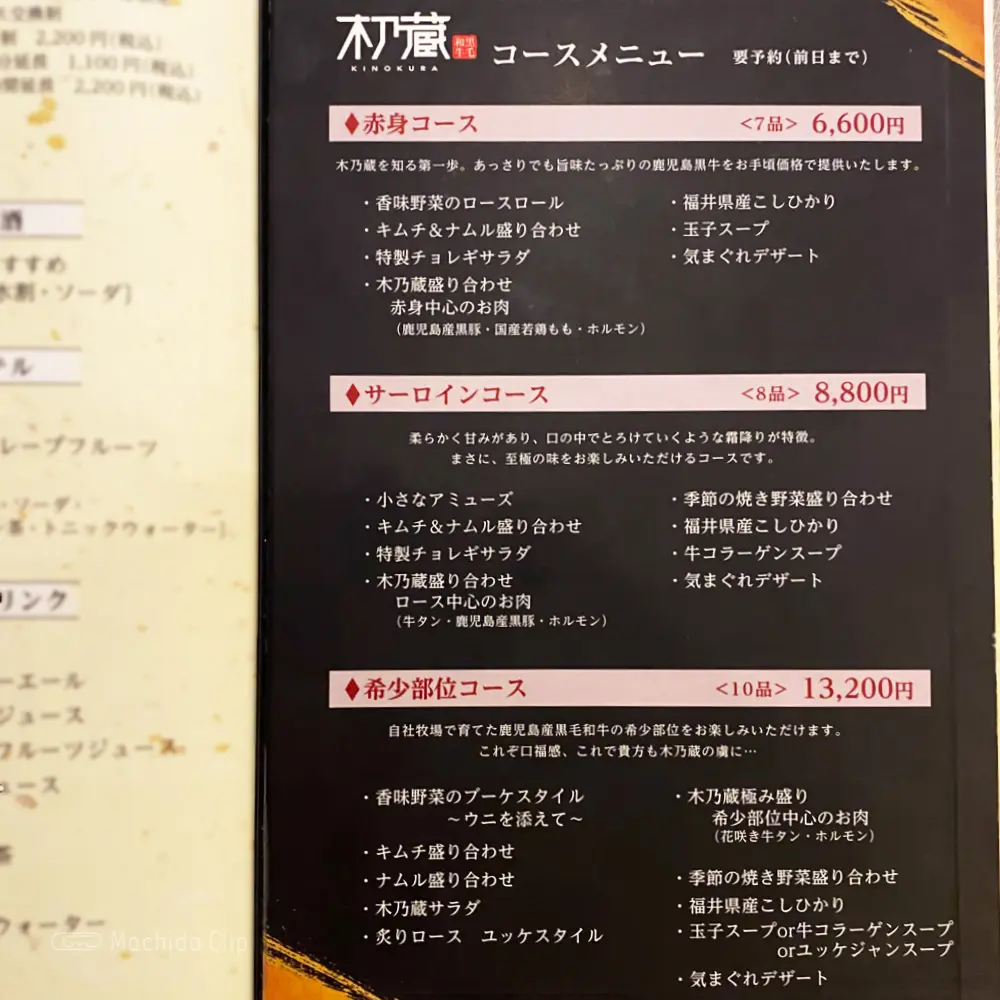 2,200円(税込)
1,100円(税込)
2,200円(税込)
酒
すすめ
水割・ソーダ)
レープフルーツ
・ソーダ・
茶・トニックウォーター)
リンク
ーエール
ジュース
フルーツジュース
ュース
茶
ウォーター
木乃蔵
黒毛和牛
KINOKURA
コースメニュー 要予約(前日まで)
♦赤身コース <7品> 6,600円
木乃蔵を知る第一歩。あっさりでも旨味たっぷりの鹿児島黒牛をお手頃価格で提供いたします。
・香味野菜のロースロール
・キムチ&ナムル盛り合わせ
・特製チョレギサラダ
・木乃蔵盛り合わせ
赤身中心のお肉
(鹿児島産黒豚・国産若鶏もも・ホルモン)
・福井県産こしひかり
・玉子スープ
・気まぐれデザート
♦サーロインコース <8品> 8,800円
柔らかく甘みがあり、口の中でとろけていくような霜降りが特徴。
まさに、至極の味をお楽しみいただけるコースです。
・小さなアミューズ
・キムチ&ナムル盛り合わせ
・特製チョレギサラダ
・木乃蔵盛り合わせ
ロース中心のお肉
(牛タン・鹿児島産黒豚・ホルモン)
・季節の焼き野菜盛り合わせ
・福井県産こしひかり
・牛コラーゲンスープ
・気まぐれデザート
♦希少部位コース <10品> 13,200円
自社牧場で育てた鹿児島産黒毛和牛の希少部位をお楽しみいただけます。
これぞ口福感、これで貴方も木乃蔵の虜に…
・香味野菜のブーケスタイル
～ウニを添えて～
・キムチ盛り合わせ
・ナムル盛り合わせ
・木乃蔵サラダ
・炙りロース ユッケスタイル
・木乃蔵極み盛り
希少部位中心のお肉
(花咲き牛タン・ホルモン)
・季節の焼き野菜盛り合わせ
・福井県産こしひかり
・玉子スープor牛コラーゲンスープ
orユッケジャンスープ
・気まぐれデザート
Machida Clip